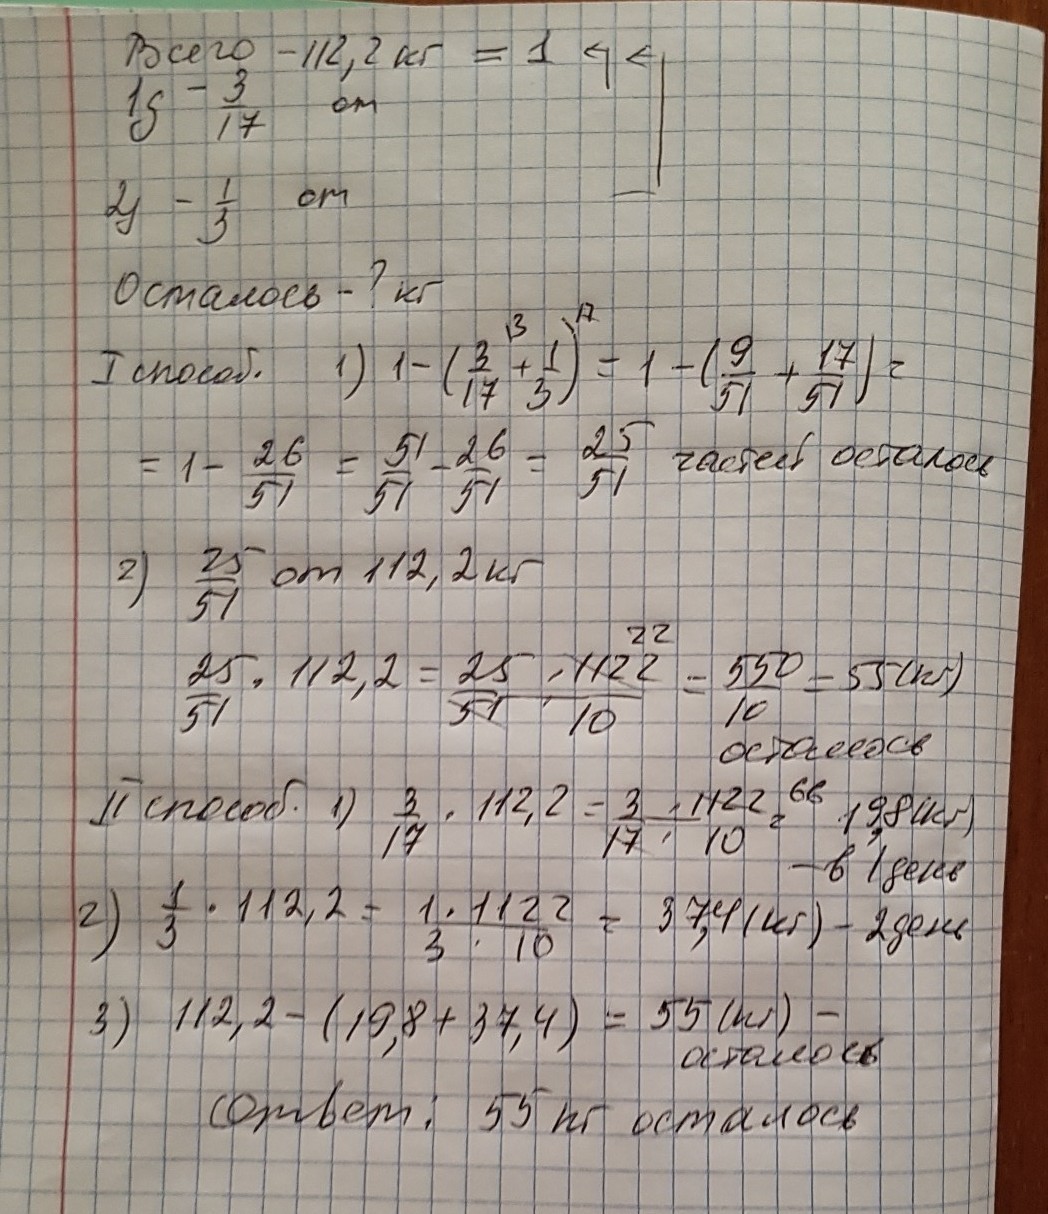 Всего - 112,2 кг = 1
1д - 3/17 от
2д - 1/3 от
Осталось - ? кг
I способ. 1) 1 - (3/17 \3 + 1/3 \17) = 1 - (9/51 + 17/51) =
= 1 - 26/51 = 51/51 - 26/51 = 25/51 частей осталось
2) 25/51 от 112,2 кг
25/51 · 112,2 = 25 · 1122 22 / 51 · 10 = 550/10 = 55 (кг)
осталось
II способ. 1) 3/17 · 112,2 = 3 · 1122 66 / 17 · 10 = 19,8 (кг)
- в 1 день
2) 1/3 · 112,2 = 1 · 1122 / 3 · 10 = 37,4 (кг) - 2 день
3) 112,2 - (19,8 + 37,4) = 55 (кг) -
осталось
Ответ: 55 кг осталось